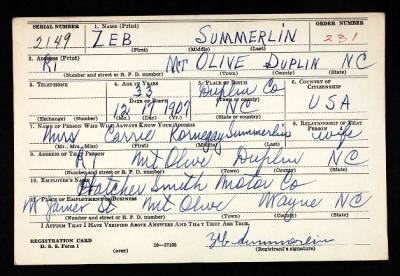 SERIAL NUMBER 1. NAME (Print) ORDER NUMBER
2149 ZEB SUMMERLIN 231
(First) (Middle) (Last)
2. ADDRESS (Print)
R1 MT OLIVE DUPLIN NC
(Number and street or R. F. D. number) (Town) (County) (State)
3. TELEPHONE 4. AGE IN YEARS 5. PLACE OF BIRTH 6. COUNTRY OF CITIZENSHIP
33 Duplin Co
DATE OF BIRTH (Town or county)
12 17 1907 NC USA
(Exchange) (Number) (Mo.) (Day) (Yr.) (State or country)
7. NAME OF PERSON WHO WILL ALWAYS KNOW YOUR ADDRESS 8. RELATIONSHIP OF THAT PERSON
Mrs Carrie Kornegay Summerlin wife
(Mr., Mrs., Miss) (First) (Middle) (Last)
9. ADDRESS OF THAT PERSON
R1 Mt Olive Duplin NC
(Number and street or R. F. D. number) (Town) (County) (State)
10. EMPLOYER'S NAME
Hatcher Smith Motor Co
11. PLACE OF EMPLOYMENT OR BUSINESS
St Mt Olive Wayne NC
(Number and street or R. F. D. number) (Town) (County) (State)
I AFFIRM THAT I HAVE VERIFIED ABOVE ANSWERS AND THAT THEY ARE TRUE.
REGISTRATION CARD
D. S. S. Form 1 16—17105 Zeb Summerlin
(over) (Registrant's signature)